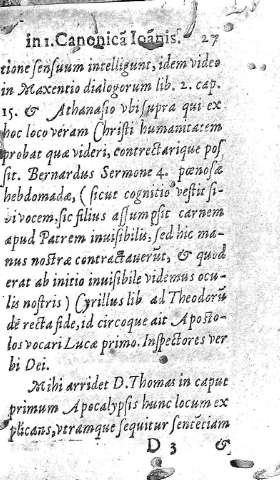 in 1. Canonicã Ioãnis. 27
tione sensuum intelligunt, idem video
in Maxentio dialogorum lib. 2. cap.
15. & Athanasio vbi supra qui ex
hoc loco veram Christi humanitatem
probat quæ videri, contrectarique pos
sit. Bernardus Sermone 4. pœnosæ
hebdomadæ, (sicut cognitio vestit si-
bi vocem, sic filius assumpsit carnem
apud Patrem inuisibilis, sed hic ma-
nus nostræ contractauerũt, & quod
erat ab initio inuisibile videmus ocu-
lis nostris) Cyrillus lib ad Theodorũ
de recta fide, id circoque ait Aposto-
los vocari Lucæ primo. Inspectores ver
bi Dei.
Mihi arridet D. Thomas in caput
primum Apocalypsis hunc locum ex
plicans, vtramque sequitur sentẽtiam
D 3 &